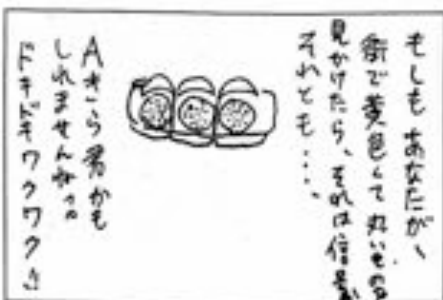 もしも あなたが、
街で黄色くて丸いものを
見かけたら、それは信号か
それとも・・・・、
Aきら君かも
しれませんねっっ
ドキドキワクワク